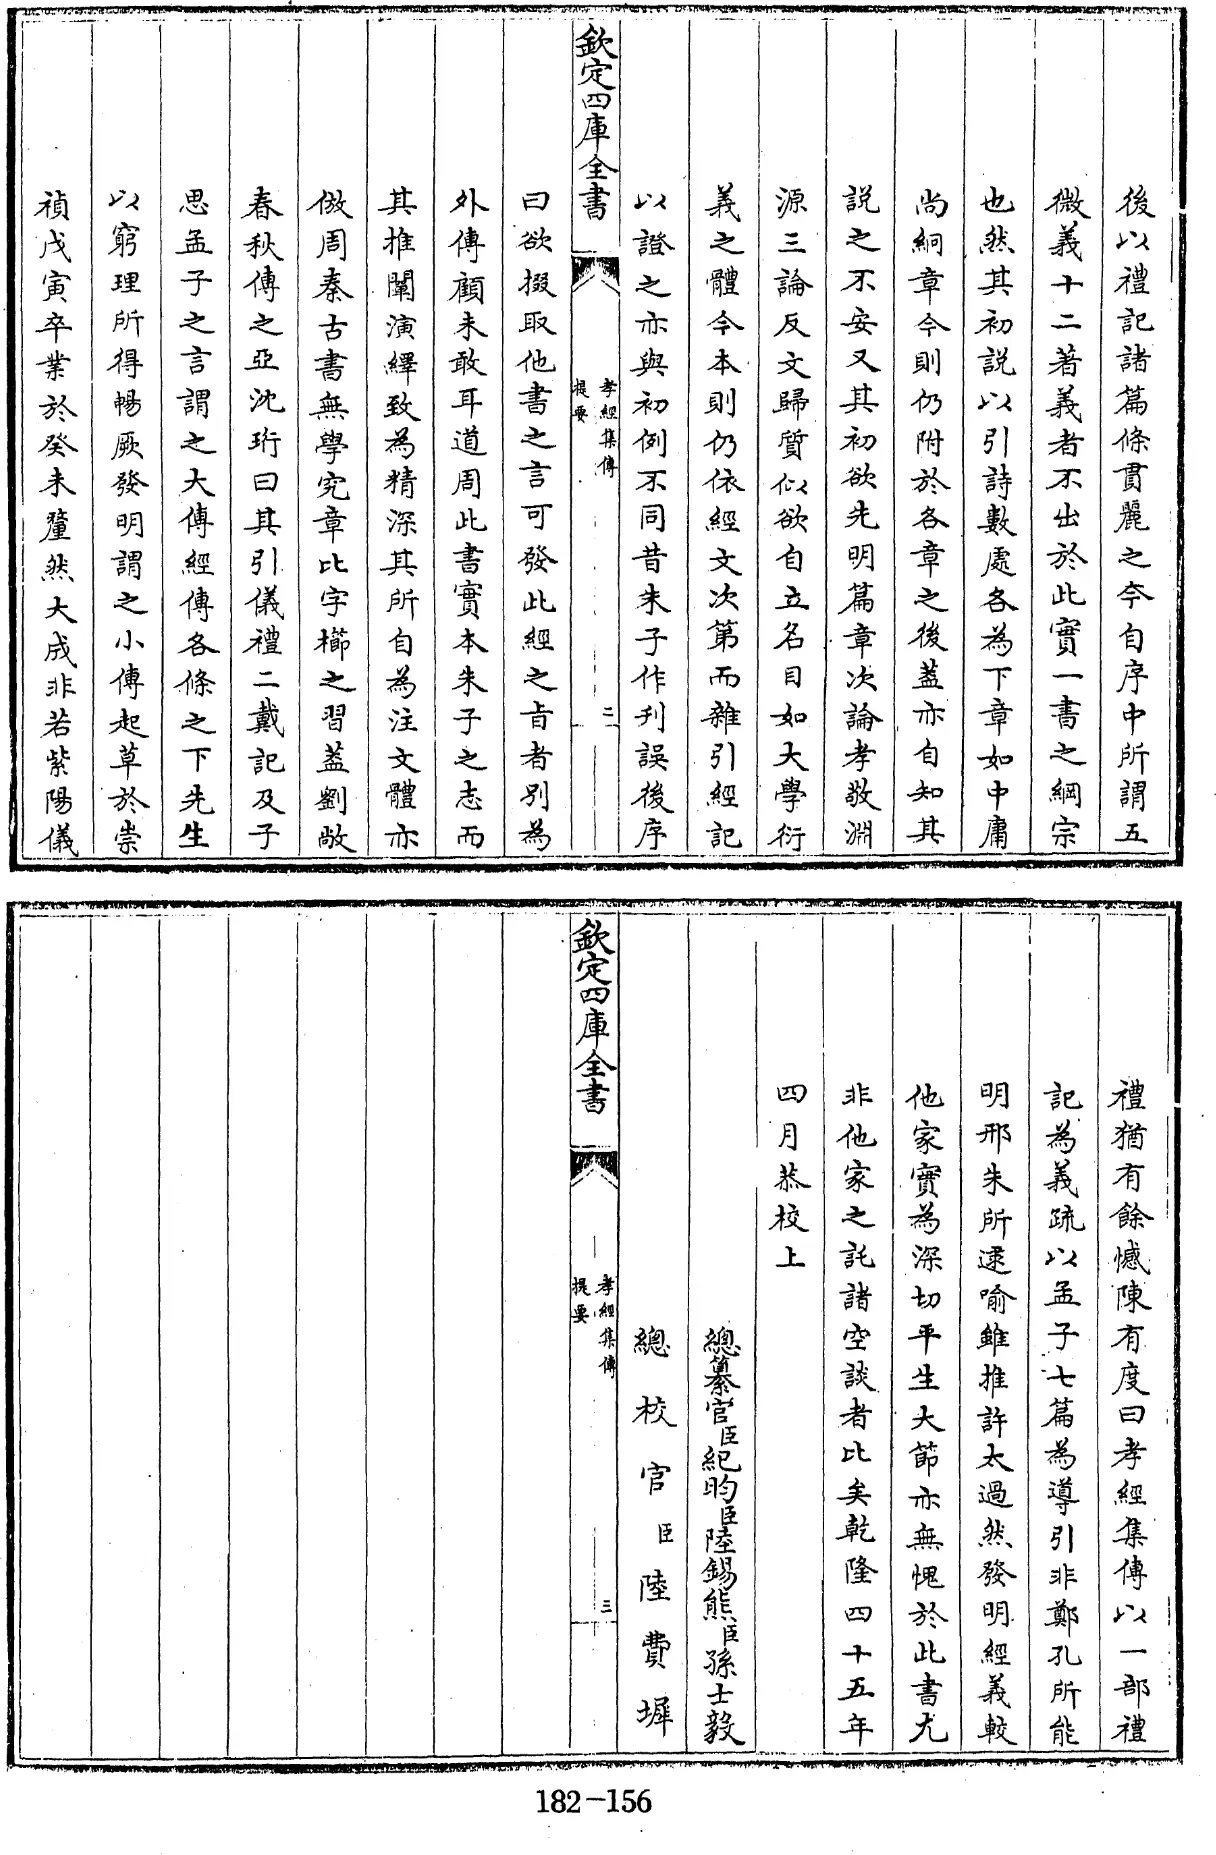 後以禮記諸篇條貫麗之今自序中所謂五
微義十二著義者不出於此實一書之綱宗
也然其初説以引詩數處各為下章如中庸
尚絅章今則仍附於各章之後蓋亦自知其
説之不安又其初欲先明篇章次論孝敬淵
源三論反文歸質似欲自立名目如大學衍
義之體今本則仍依經文次第而雜引經記
以證之亦與初例不同昔朱子作刋誤後序
欽定四庫全書
孝經集傳
提要
二
曰欲掇取他書之言可發此經之㫖者别為
外傳顧未敢耳道周此書實本朱子之志而
其推闡演繹致為精深其所自為注文體亦
倣周秦古書無學究章比字櫛之習蓋劉敞
春秋傳之亞沈珩曰其引儀禮二戴記及子
思孟子之言謂之大傳經傳各條之下先生
以窮理所得暢厥發明謂之小傳起草於崇
禎戊寅卒業於癸未釐然大成非若紫陽儀
禮猶有餘憾陳有度曰孝經集傳以一部禮
記為義疏以孟子七篇為導引非鄭孔所能
明邢朱所逮喻雖推許太過然發明經義較
他家實為深切平生大節亦無愧於此書尤
非他家之託諸空談者比矣乾隆四十五年
四月恭校上
總纂官臣紀昀臣陸錫熊臣孫士毅
總校官臣陸費墀
欽定四庫全書
孝經集傳
提要
三
182-156